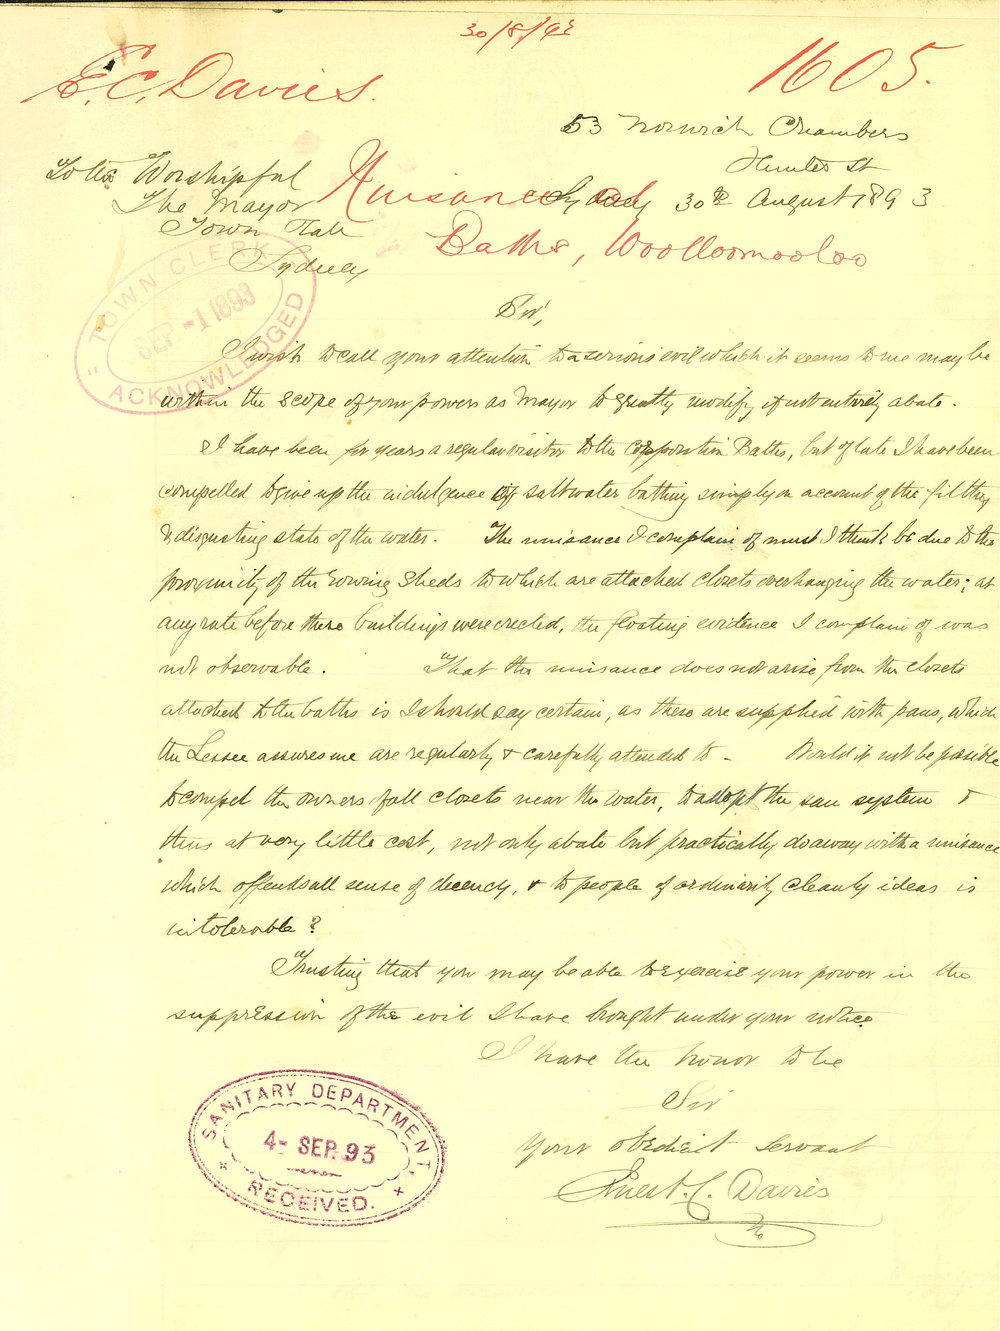 30/8/93
E. C. Davies.
1605.
53 Norwich Chambers
Hunter St
Sydney 30th August 1893
To His Worshipful
The Mayor
Town Hall
Sydney
Nuisance at
Baths, Woolloomooloo
TOWN CLERK
SEP -1 1893
ACKNOWLEDGED
Sir,
I wish to call your attention to a serious evil which it seems to me may be
within the scope of your powers as Mayor to greatly modify if not entirely abate.
I have been for years a regular visitor to the Corporation Baths, but of late I have been
compelled to give up the indulgence of saltwater bathing simply on account of the filthy
& disgusting state of the water. The nuisance I complain of must I think be due to the
proximity of the rowing sheds to which are attached closets overhanging the water; at
any rate before these buildings were erected, the floating evidence I complain of was
not observable. That the nuisance does not arise from the closets
attached to the baths is I should say certain, as these are supplied with pans, which
the Lessee assures me are regularly & carefully attended to - Would it not be possible
to compel the owners of all closets near the water, to adopt the pan system &
thus at very little cost, not only abate but practically do away with a nuisance
which offends all sense of decency, & to people of ordinarily cleanly ideas is
intolerable?
Trusting that you may be able to exercise your power in the
suppression of the evil I have brought under your notice
I have the honor to be
Sir
Your obedient servant
Ernest C. Davies
SANITARY DEPARTMENT,
4- SEP. 93
RECEIVED.